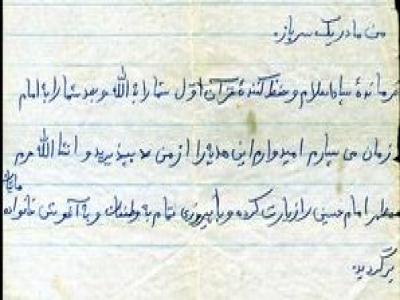 من مادر یک سرباز.
فرماندهٔ سپاه اسلام و حفظ کنندهٔ قرآن اول شما را به الله و بعد شما را به امام
زمان می سپارم امیدوارم این هدیه را از من بپذیرید و انشا الله حرم
مطهر امام حسین را زیارت کرده و با پیروزی تمام به وطنتان و به آغوش خانواده
برگردید.